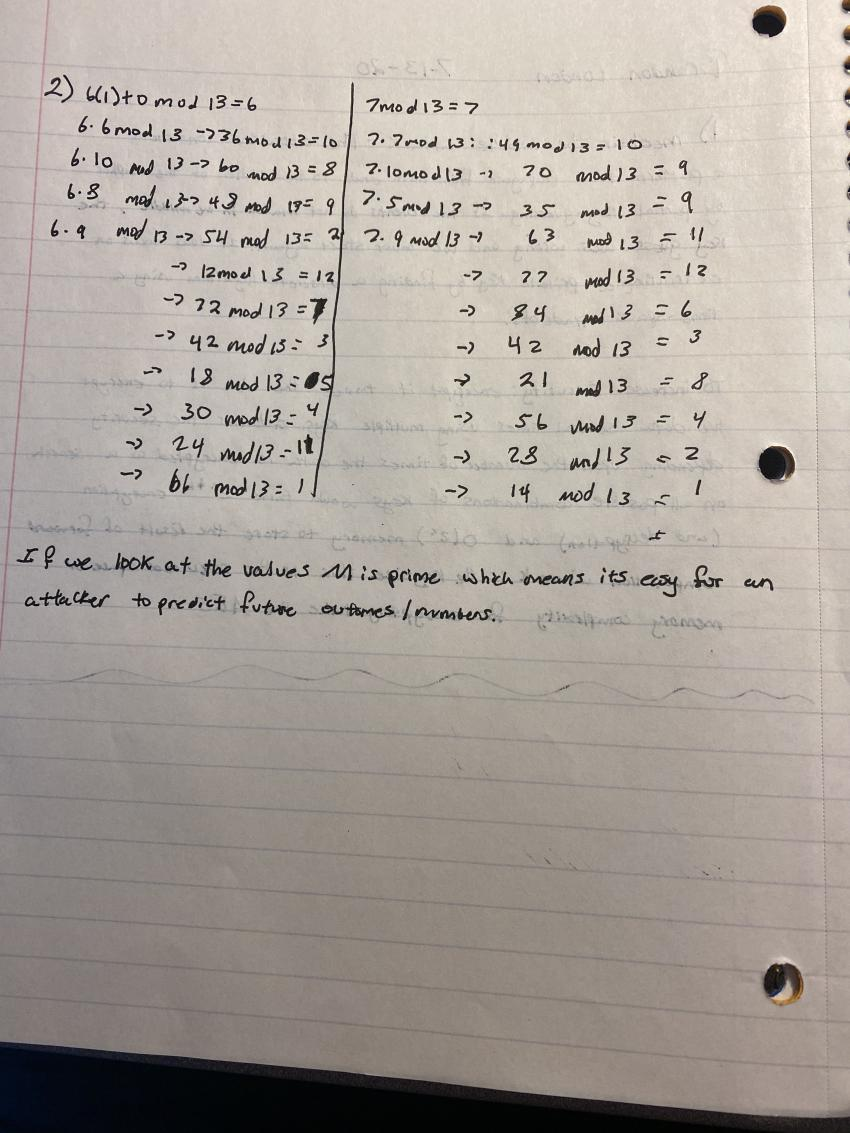 2) 6(1)+0 mod 13=6
6·6 mod 13 -> 36 mod 13=10
6·10 mod 13 -> 60 mod 13 = 8
6·8 mod 13-> 48 mod 13= 9
6·9 mod 13 -> 54 mod 13= 2
-> 12 mod 13 = 12
-> 72 mod 13 = 7
-> 42 mod 13 = 3
-> 18 mod 13 = 5
-> 30 mod 13 = 4
-> 24 mod 13 = 11
-> 66 mod 13 = 1
7 mod 13 = 7
7·7 mod 13 : : 49 mod 13 = 10
7·10 mod 13 -> 70 mod 13 = 9
7·5 mod 13 -> 35 mod 13 = 9
7·9 mod 13 -> 63 mod 13 = 11
-> 77 mod 13 = 12
-> 84 mod 13 = 6
-> 42 mod 13 = 3
-> 21 mod 13 = 8
-> 56 mod 13 = 4
-> 28 mod 13 = 2
-> 14 mod 13 = 1
If we look at the values M is prime which means its easy for an
attacker to predict future outcomes / numbers.